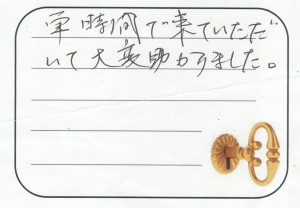 短時間で来ていただ
いて大変助かりました。